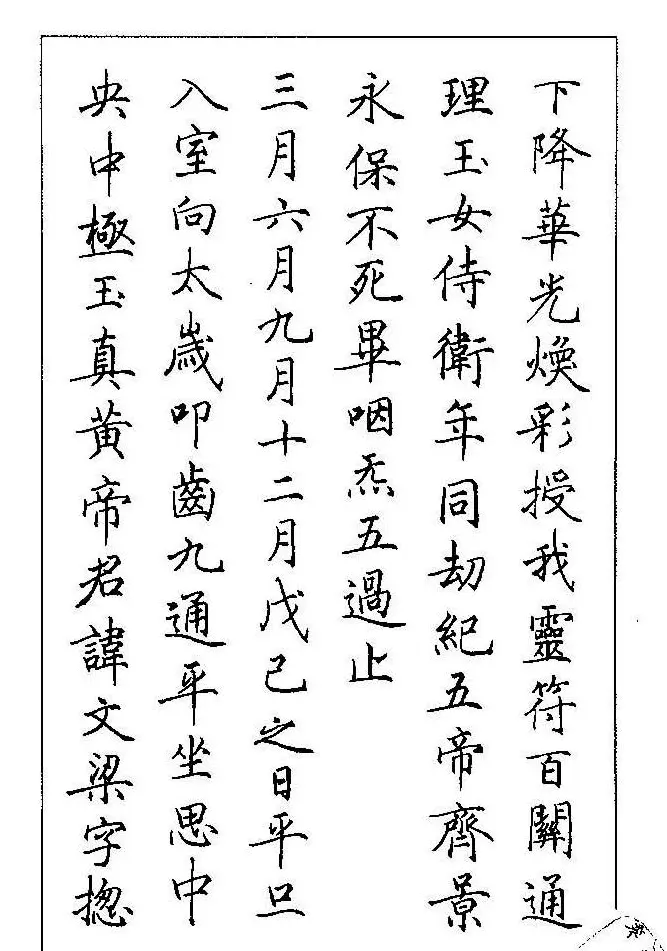 下降華光煥彩授我靈符百關通
理玉女侍衛年同劫紀五帝齊景
永保不死畢咽炁五過止
三月六月九月十二月戊己之日平旦
入室向太歲叩齒九通平坐思中
央中極玉真黃帝君諱文梁字揔